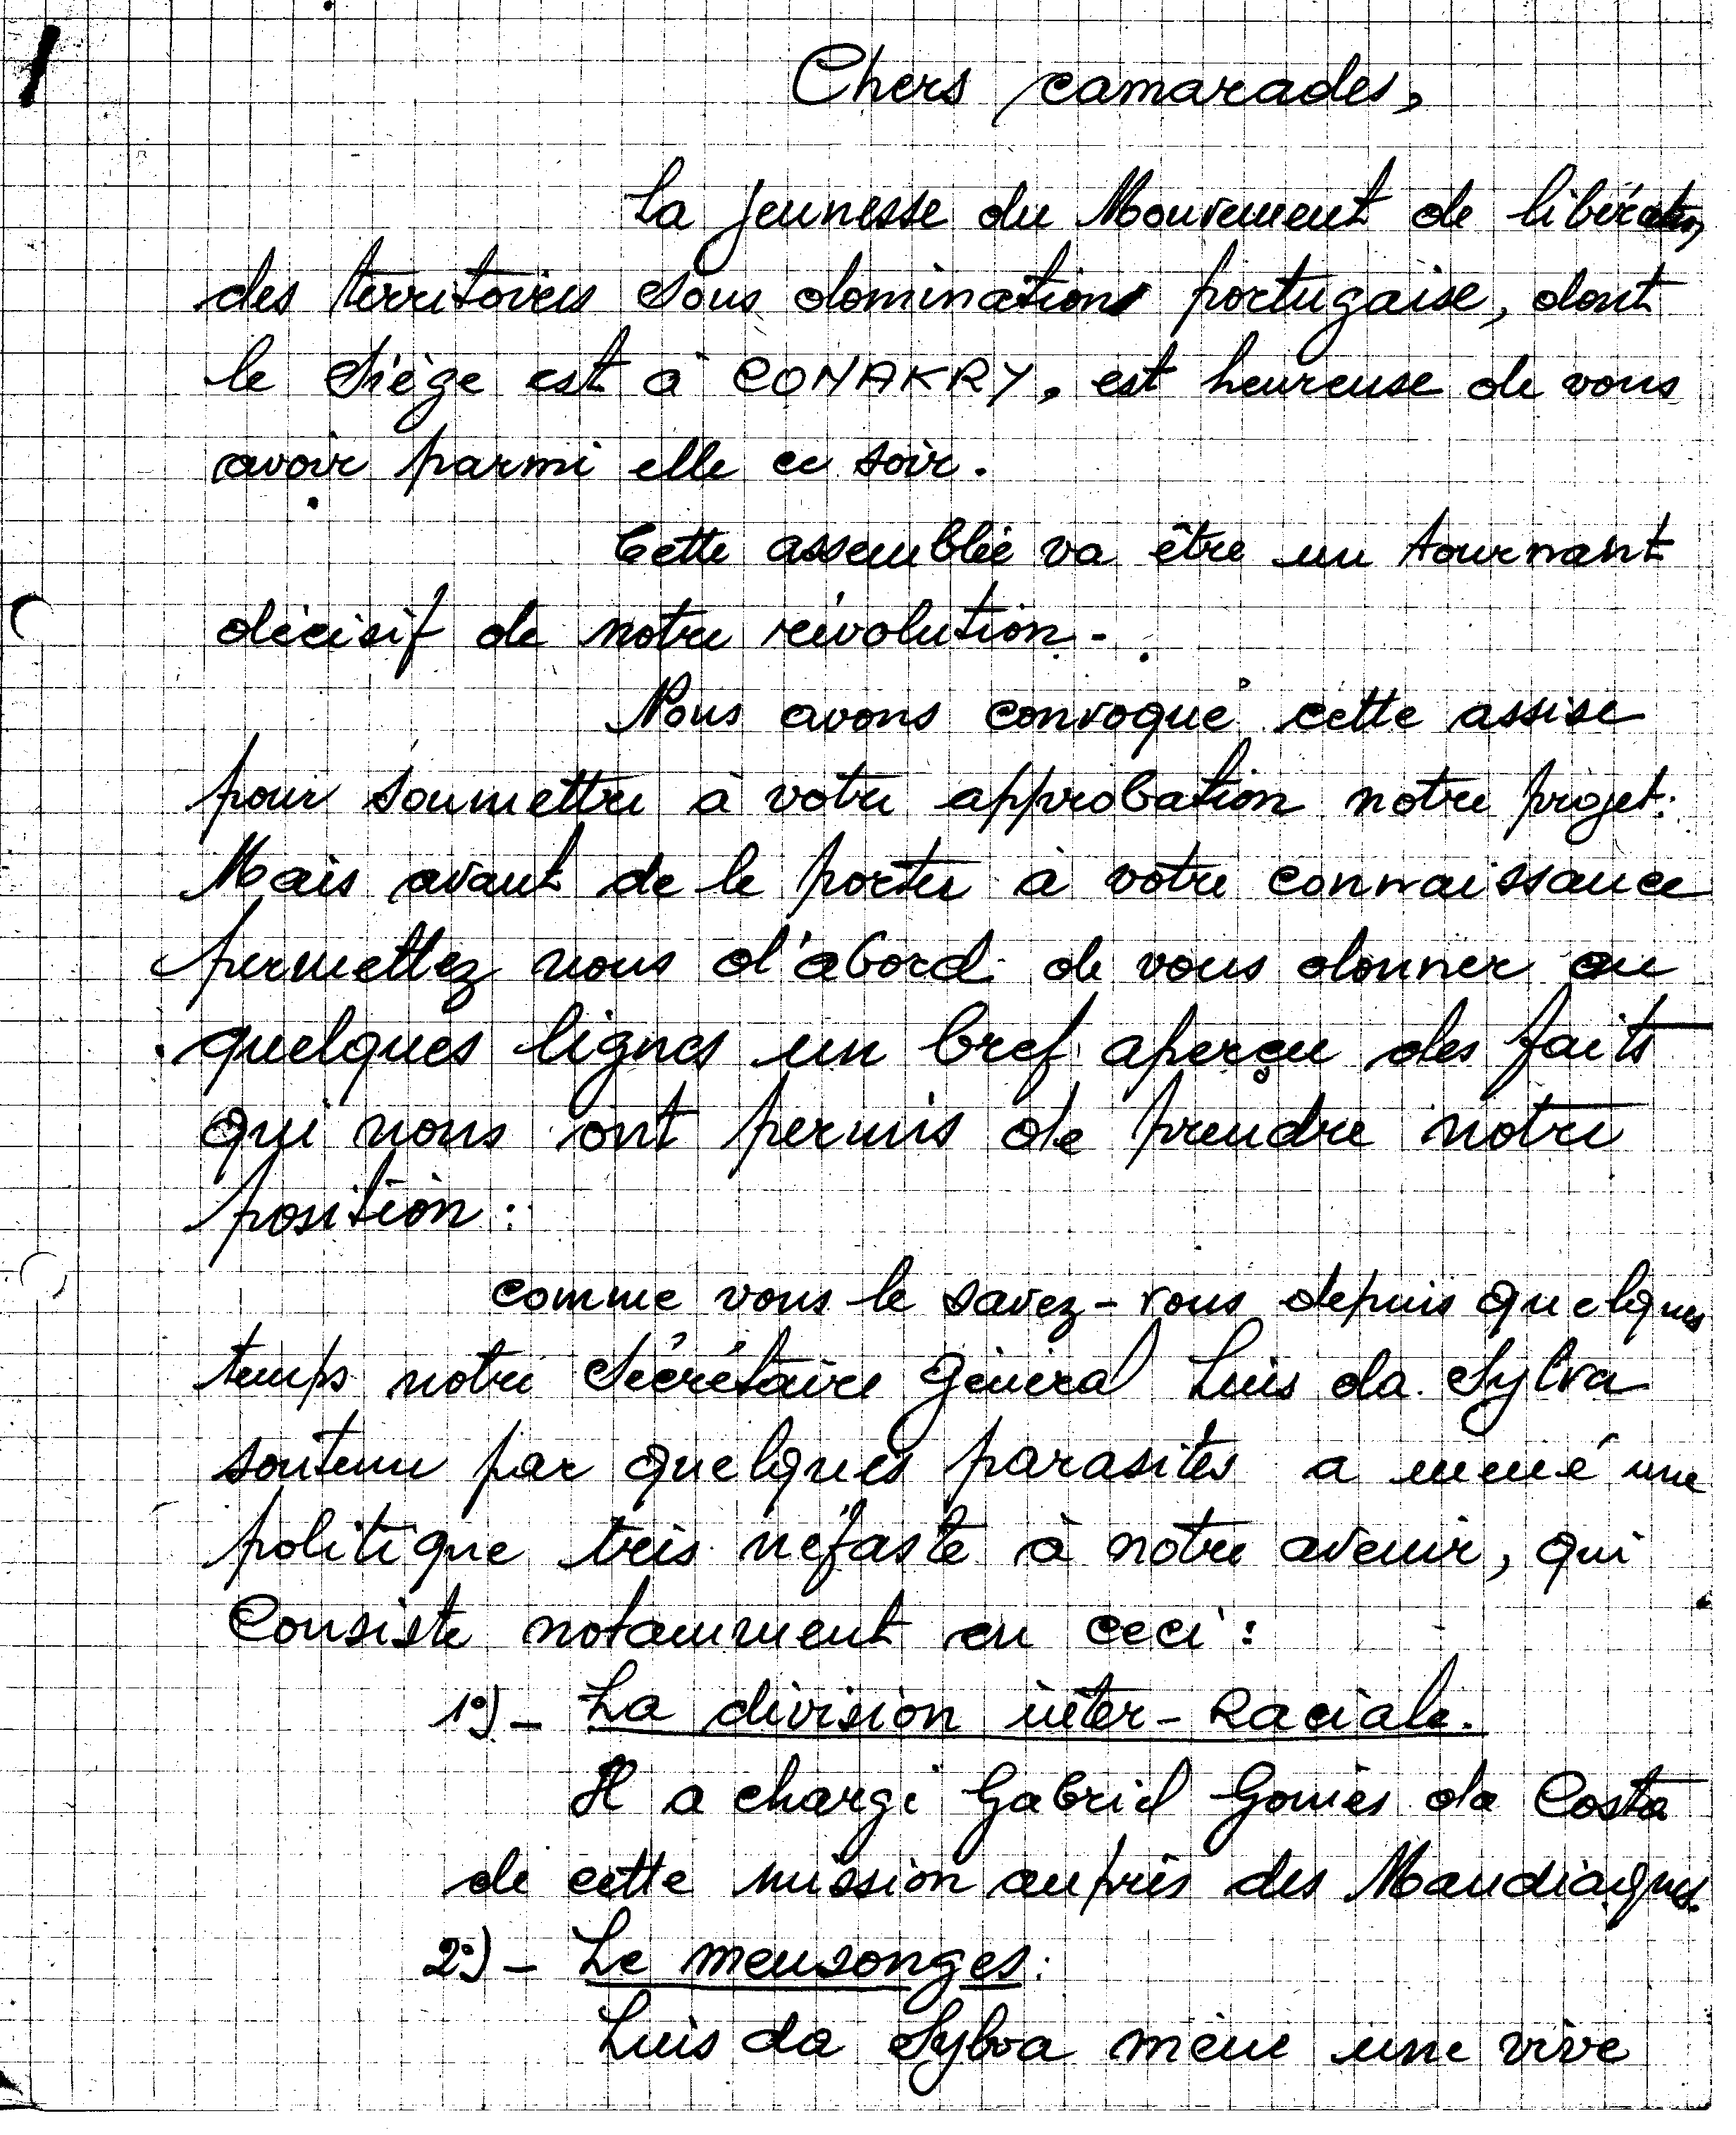 1
Chers camarades,
La jeunesse du Mouvement de libération
des territoires sous domination portugaise, dont
le Siège est à CONAKRY, est heureuse de vous
avoir parmi elle ce soir.
Cette assemblée va être un tournant
décisif de notre révolution.
Nous avons convoqué cette assise
pour soumettre à votre approbation notre projet.
Mais avant de le porter à votre connaissance
permettez nous d'abord de vous donner en
quelques lignes un bref aperçu des faits
qui nous ont permis de prendre notre
position :
comme vous le savez-vous depuis quelques
temps notre Sécrétaire Général Luis da Sylva
soutenu par quelques parasites a mené une
politique très néfaste à notre avenir, qui
Consiste notamment en ceci :
1°)- La division inter-Raciale.
Il a chargé Gabriel Gomès da Costa
de cette mission auprès des Mandiagues.
2°)- Le mensonges :
Luis da Sylva mène une vive